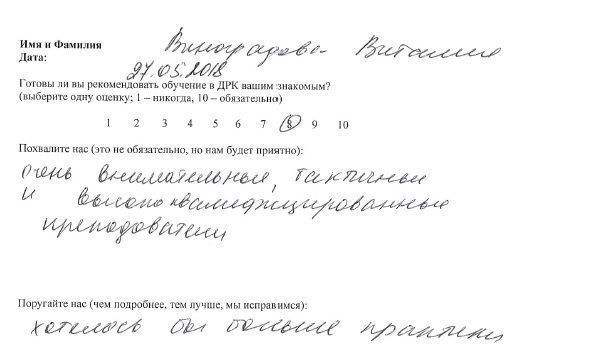 Имя и Фамилия Виноградова Виталия
Дата: 27.05.2018
Готовы ли вы рекомендовать обучение в ДРК вашим знакомым?
(выберите одну оценку; 1 – никогда, 10 – обязательно)
1 2 3 4 5 6 7 8 9 10
Похвалите нас (это не обязательно, но нам будет приятно):
Очень внимательные, тактичные
и высококвалифицированные
преподователи
Поругайте нас (чем подробнее, тем лучше, мы исправимся):
хотелось бы больше практики